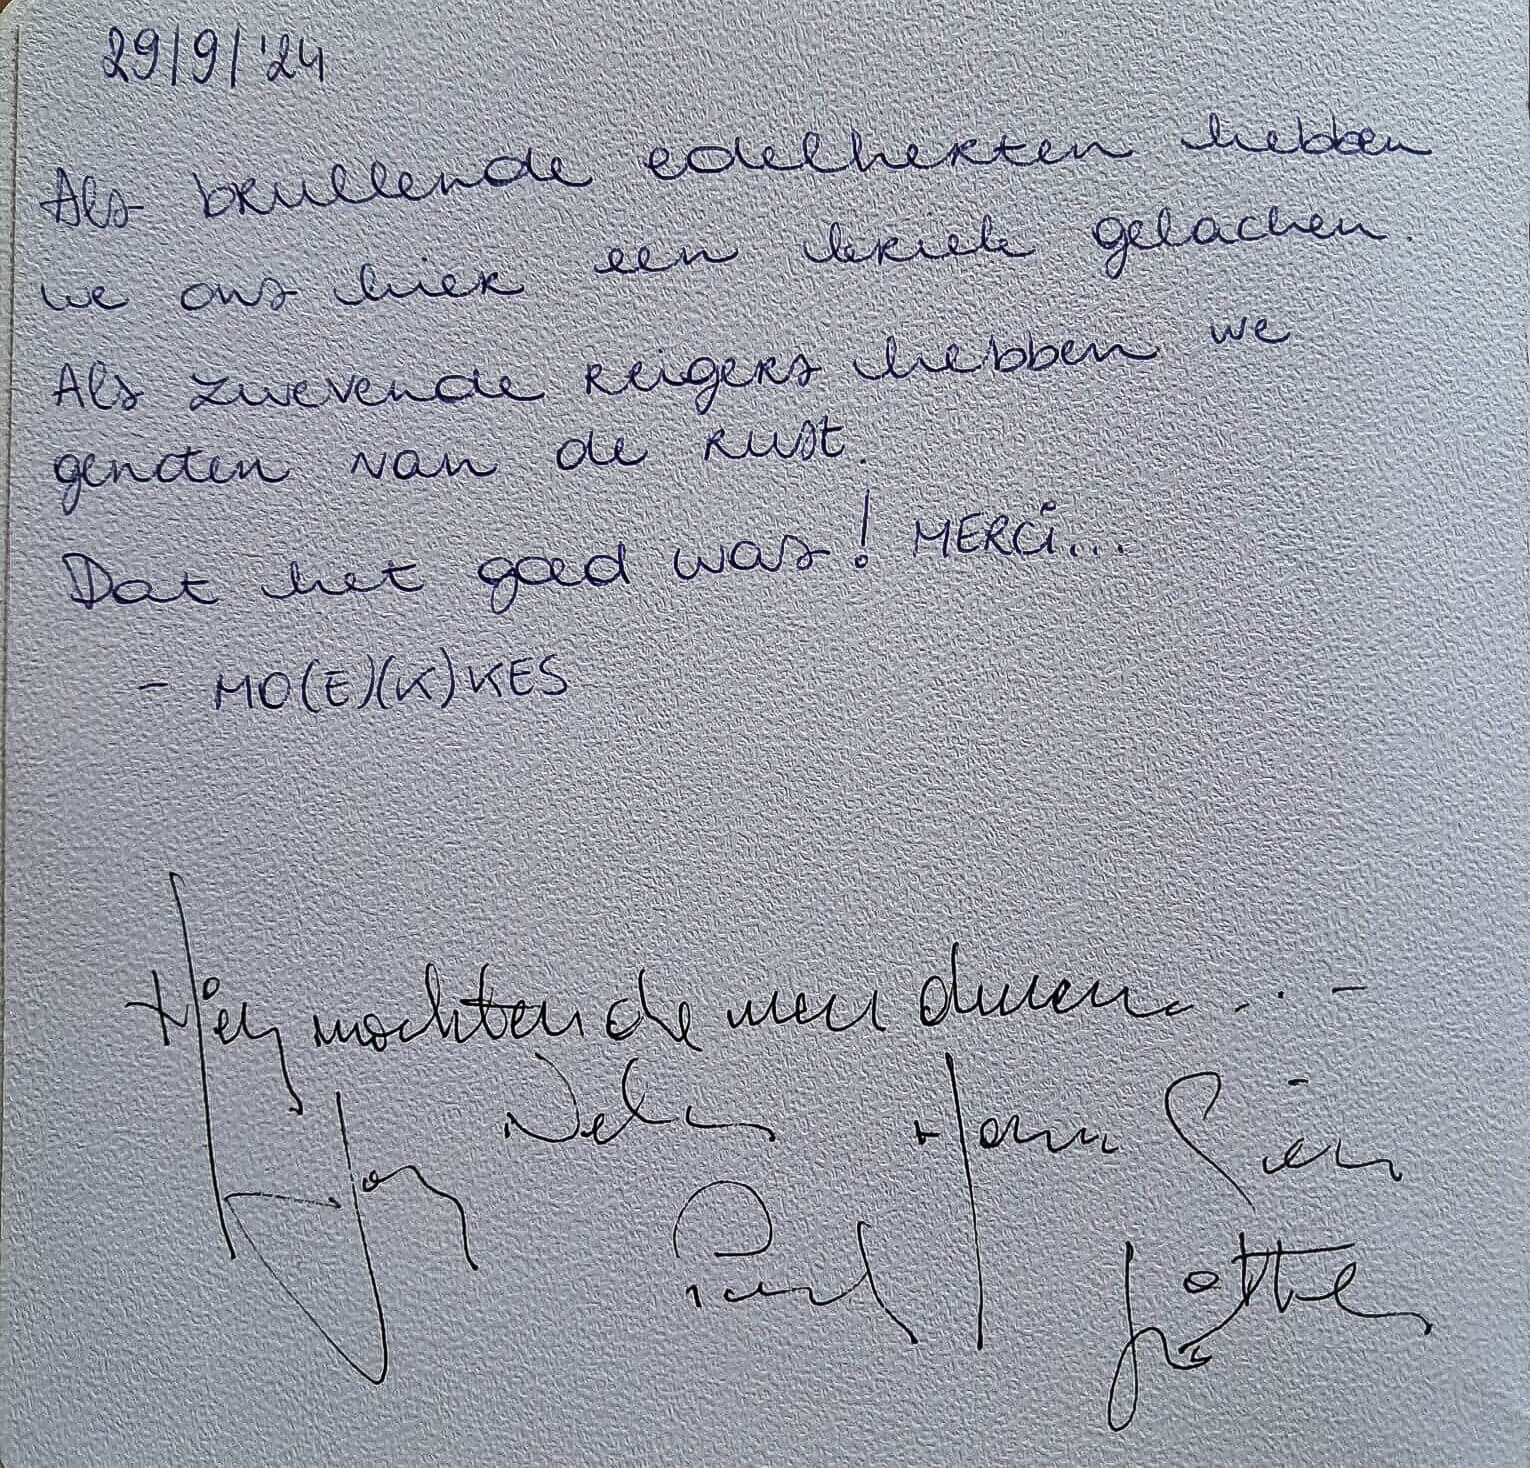 29/9/'24
Als brullende edelherten hebben
we ons hier een kriek gelachen.
Als zwevende reigers hebben we
genoten van de rust.
Dat het goed was! MERCi...
- MO(E)(K)KES
Hier mochten de men duren... -
Jan Hann Sien
Paul Lotte